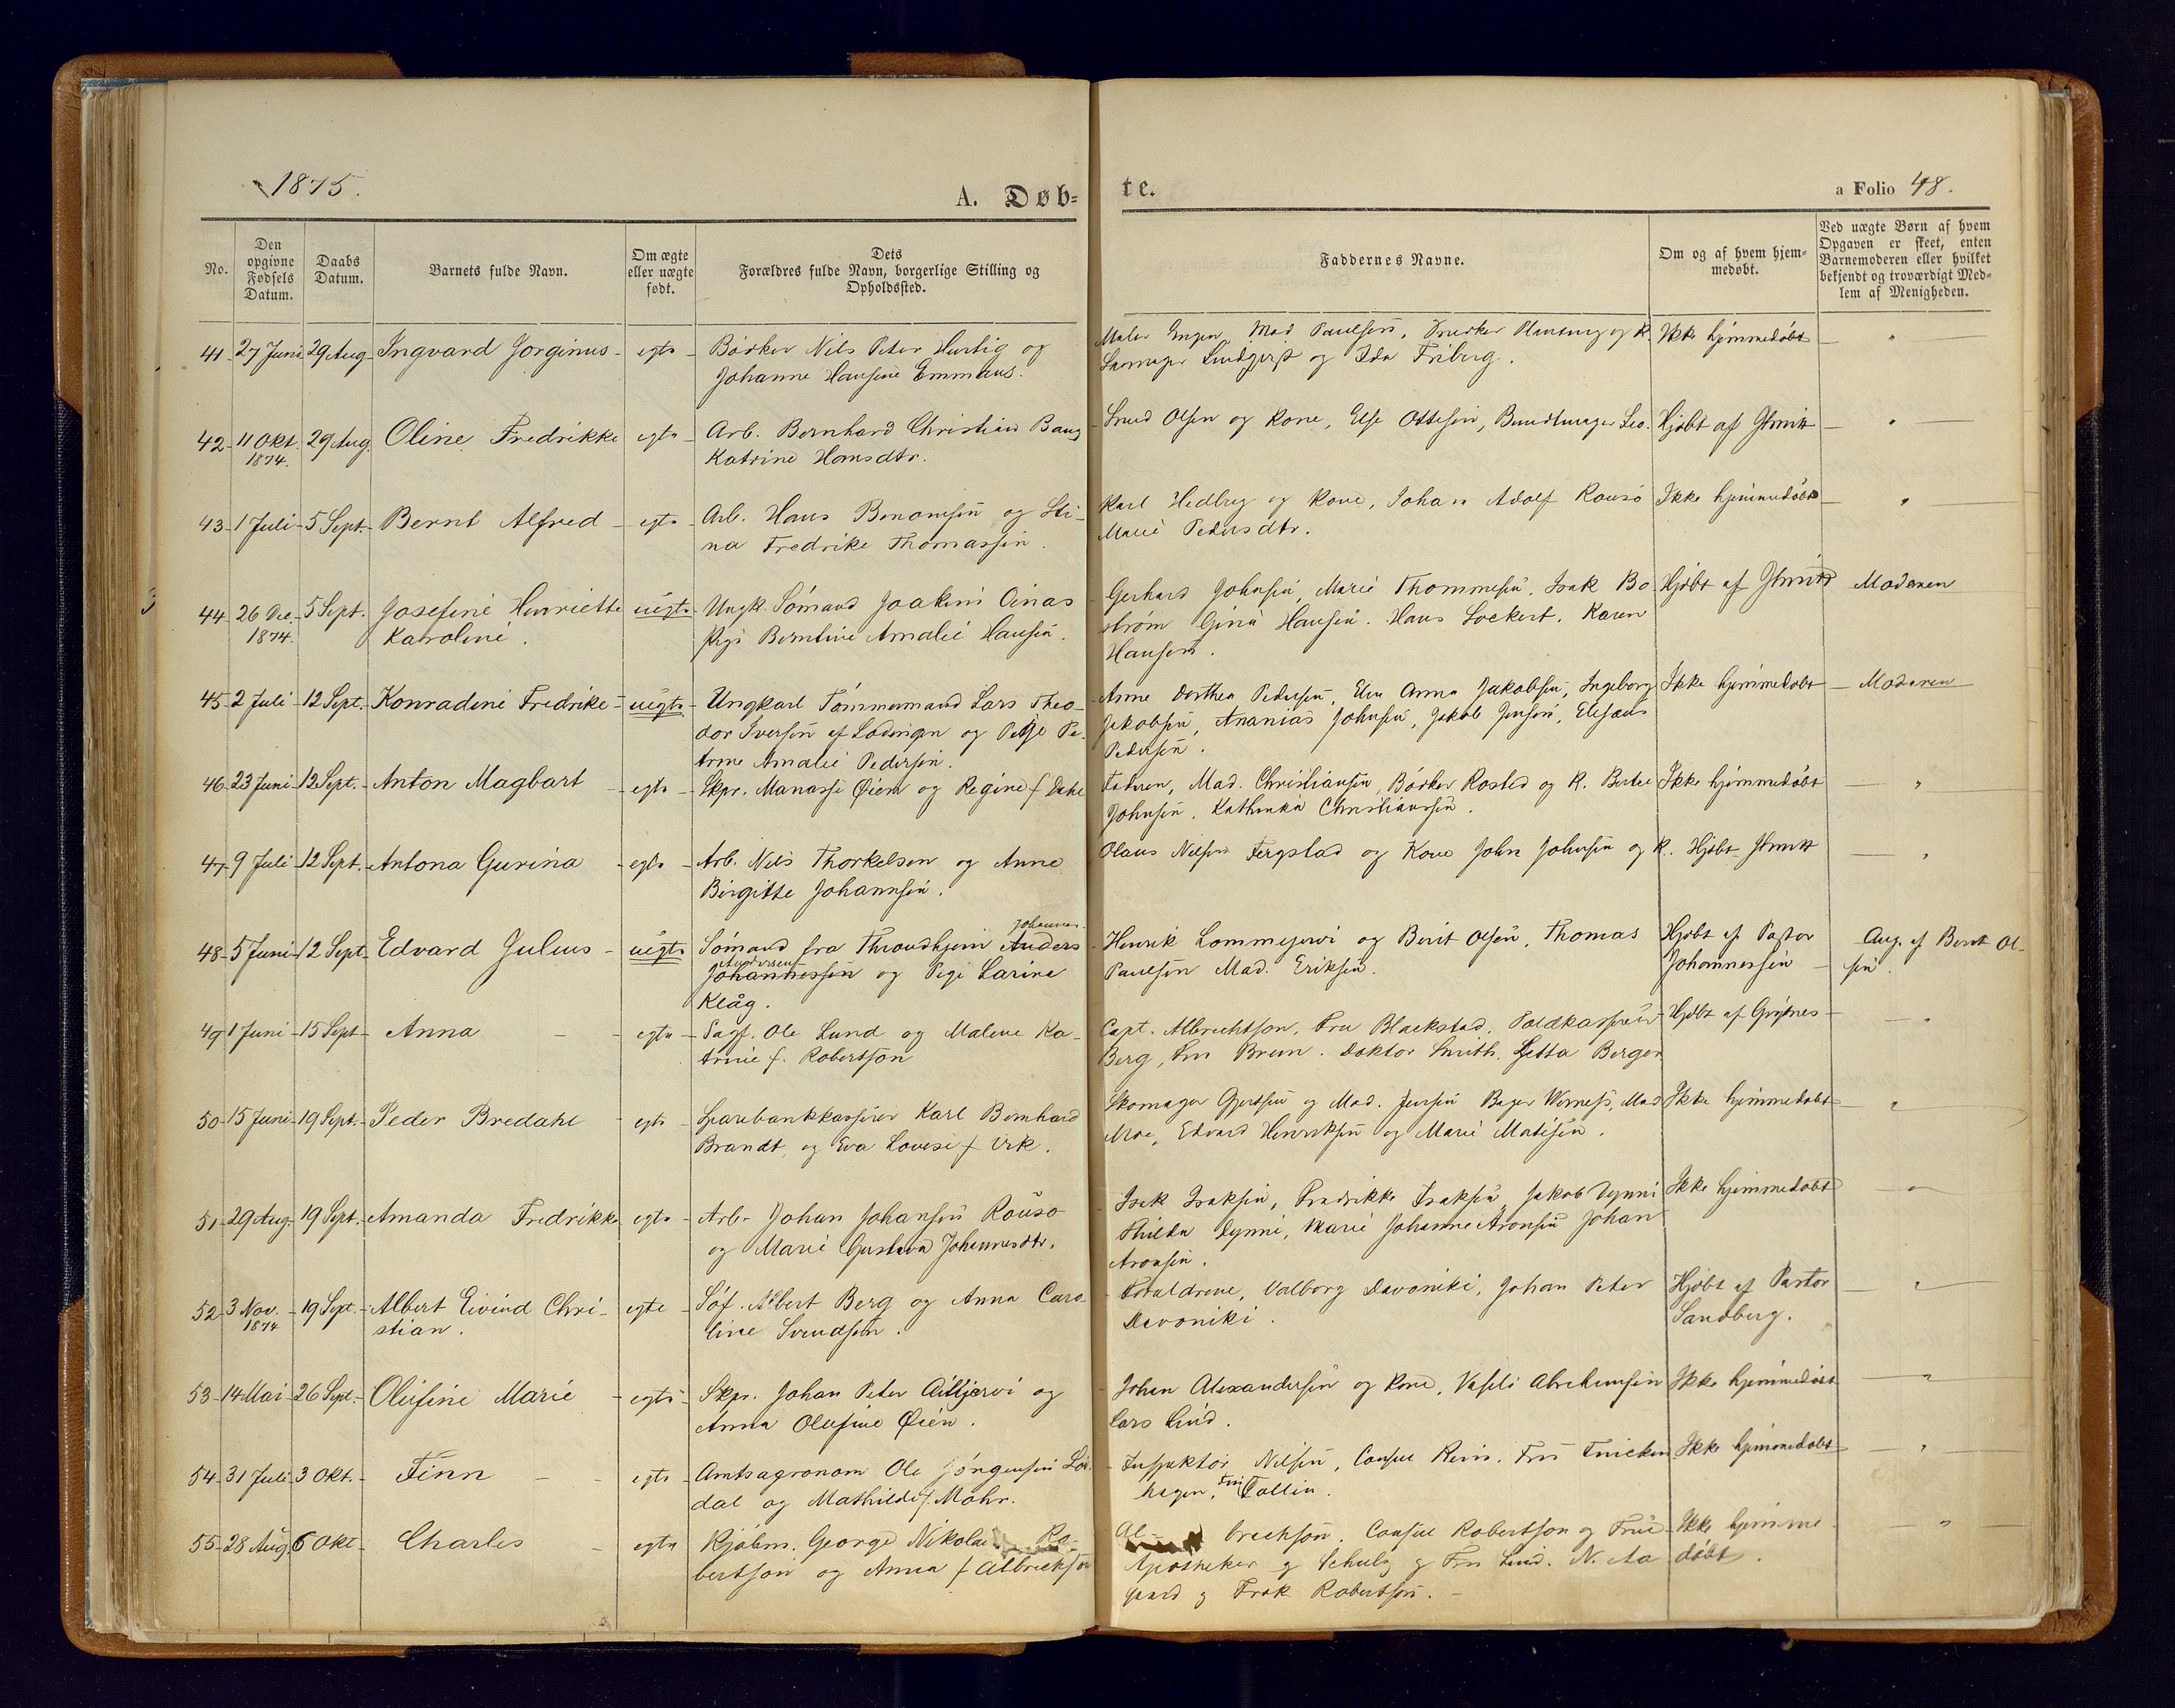 1875.
A. Døb-
te.
a Folio 48.
No.
Den opgivne Fødsels Datum.
Daabs Datum.
Barnets fulde Navn.
Om ægte eller uægte født.
Dets Forældres fulde Navn, borgerlige Stilling og Opholdssted.
Faddernes Navne.
Om og af hvem hjemmedøbt.
Ved uægte Børn af hvem Opgaven er skeet, enten Barnemoderen eller hvilket bekjendt og troværdigt Medlem af Menigheden.
41 - 27 Juni - 29 Aug - Ingvard Jorginus - egte - Bødker Nils Peter Hertig og
Johanne Hansine Emmaus.
Maler Engen, Mad Paulsen, og K.
og Ida Friberg.
Ikke hjemmedøbt - "
42 - 11 Okt. 1874. - 29 Aug. Oline Fredrikke egte - Arb. Bernhard Christian Bang
Katrine Hansdtr.
Smed Olsen og Kone, Else Ottesen, Bundtmager Leo.
Hjdbt af Schmitt - "
43 - 1 Juli - 5 Sept. - Bernt Alfred - egte - Arb. Hans Benonisen og Sti-
na Fredrike Thomassen.
Karl Hedberg og Kone, Johan Adolf Rousø
Marie Pedersdtr.
Ikke hjemmedøbt - "
44 - 26 Dec. 1874. - 5 Sept. Josefine Henriette
Karoline.
uegte - Ungk. Sömand Joakim Oinas
Pige Berntine Amalie Hansen.
Gerhard Johnsen, Marie Thommesen, Isak Bo
ström Gina Hansen. Hans Lockert. Karen
Hansen.
Hjdbt af Schmitt Moderen
45 - 2 Juli - 12 Sept. - Konradine Fredrike - uegte - Ungkarl Tömmermand Lars Theo-
dor Iversen af Lødingen og Pige Pe-
trine Amalie Pedersen.
Anne Dorthea Pedersen, Elen Anna Jakobsen, Ingeborg
Jakobsen, Ananias Johnsen, Jakob Jensen, Elisæus
Pedersen.
Ikke hjemmedøbt - Moderen
46 - 23 Juni - 12 Sept. - Anton Magbart - egte - Skpr. Manasse Øien og Regine f Dahl
Faderen, Mad. Christiansen, Bödker Rosted og K. Berte
Johnsen. Kathinka Christiansen.
Ikke hjemmedøbt - "
47 - 9 Juli - 12 Sept. - Antona Gurina - egte - Arb. Nils Thorkelsen og Anne
Birgitte Johannsen.
Olaus Nilsen Fergstad og Kone John Johnsen og K.
Hjdbt Schmitt - "
48 - 5 Juni - 12 Sept. - Edvard Julius - uegte Sömand fra Throndhjem Anders Johannes
Johannessen Andersen og Pige Larine
Klåg.
Henrik Lommejervi og Berit Olsen, Thomas
Paulsen Mad. Eriksen.
Hjdbt af Pastor
Johannessen - Ang. af Berit Ol-
sen.
49 - 1 Juni - 15 Sept - Anna - egte - Sagf. Ole Lund og Malene Ka-
trine f. Robertson
Capt. Albrechtson, Fru Blackstad, Toldkasserer
Berg, Fru Brun. Doktor Smith. Jetta Berger
Hjdbt af Grötnes - "
50 - 15 Juni - 19 Sept. - Peder Bredahl - egte - Sparebankkasserer Karl Bernhard
Brandt, og Eva Lovise f Irk.
Skomager Gjertsen og Mad. Jensen Bager Werness, Mad
Moe, Edvard Henriksen og Marie Matisen.
Ikke hjemmedøbt - "
51 - 29 Aug. 19 Sept. - Amanda Fredrikke egte - Arb. Johan Johansen Rousø
og Marie Gustava Johannesdtr.
Isak Isaksen, Fredrikke Isaksen Jakob Dynni
Hilda Dynni, Marie Johanne Aronsen Johan
Aronsen.
Ikke hjemmedøbt - "
52 - 3 Nov. 1874 - 19 Sept. - Albert Eivind Chri-
stian.
egte - Söf. Albert Berg og Anna Caro-
line Svendsen.
Forældrene, Valborg Davoniki, Johan Peter
Davoniki.
Hjdbt af Pastor
Sandberg. - "
53 - 14 Mai - 26 Sept. - Olufine Marie - egte - Skpr. Johan Peter Aitijervi og
Anna Olufine Øien.
Johan Alexandersen og Kone, Vasili Abrahamsen
Lars Lind.
Ikke hjemmedøbt - "
54 - 31 Juli - 3 Okt. - Finn - egte - Amtsagronom Ole Jörgensen Lör-
dal og Mathilde f. Mohr.
Inspektör Nilsen, Consul Rein. Fru Finchen
hagen, Fru Collin.
Ikke hjemmedøbt - "
55 - 28 Aug. 6 Okt - Charles - egte Kjöbm. George Nikolai Ro-
bertson og Anna f Albrechtson
Al-
brechson. Consul Robertson og Frue
Apotheker g Schulz g Fru Lund. N. Aa
gaard g Frøk Robertson. -
Ikke hjemme-
døbt. - "